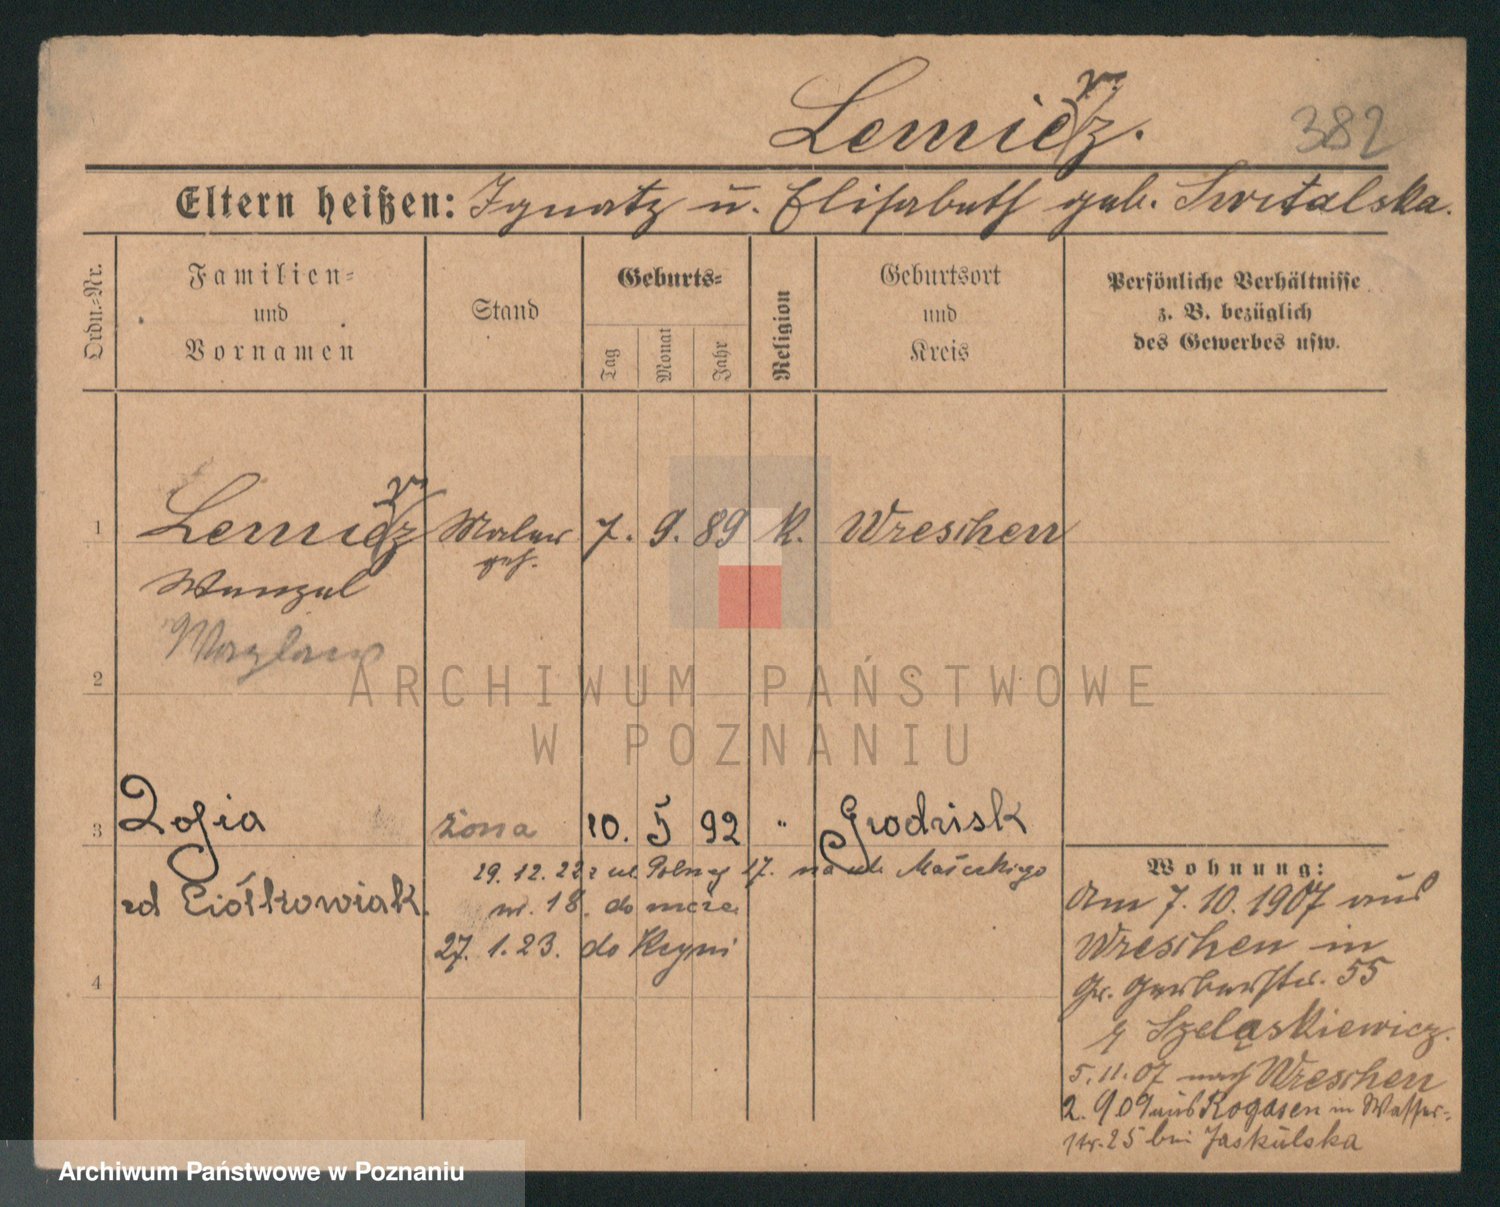 Lemiesz.
382
Eltern heißen: Ignatz u. Elisabeth geb. Switalska.
Ordn.-Nr.
Familien-
und
Vornamen
Stand
Geburts-
Tag
Monat
Jahr
Religion
Geburtsort
und
Kreis
Persönliche Verhältnisse
z. B. bezüglich
des Gewerbes usw.
1 Maler 7. 9. 89 k. Wreschen
geh.
Wenzel
2
ARCHIWUM PAŃSTWOWE
W POZNANIU
3 Zofia żona 10. 5 92 " Grodzisk
zd Ciółkowiak.
19. 12. 22 z ul Polnej 17. na ul. Małeckiego
nr. 18. do męża
27. 1. 23. do
4
Wohnung:
Am 7. 10. 1907 aus
Wreschen in
Gr. Gerberstr. 55
Szeląskiewicz.
5. 11. 07 nach Wreschen
2. 9 09 aus Rogasen in Wasser-
str. 25 bei Jaskulska
Archiwum Państwowe w Poznaniu